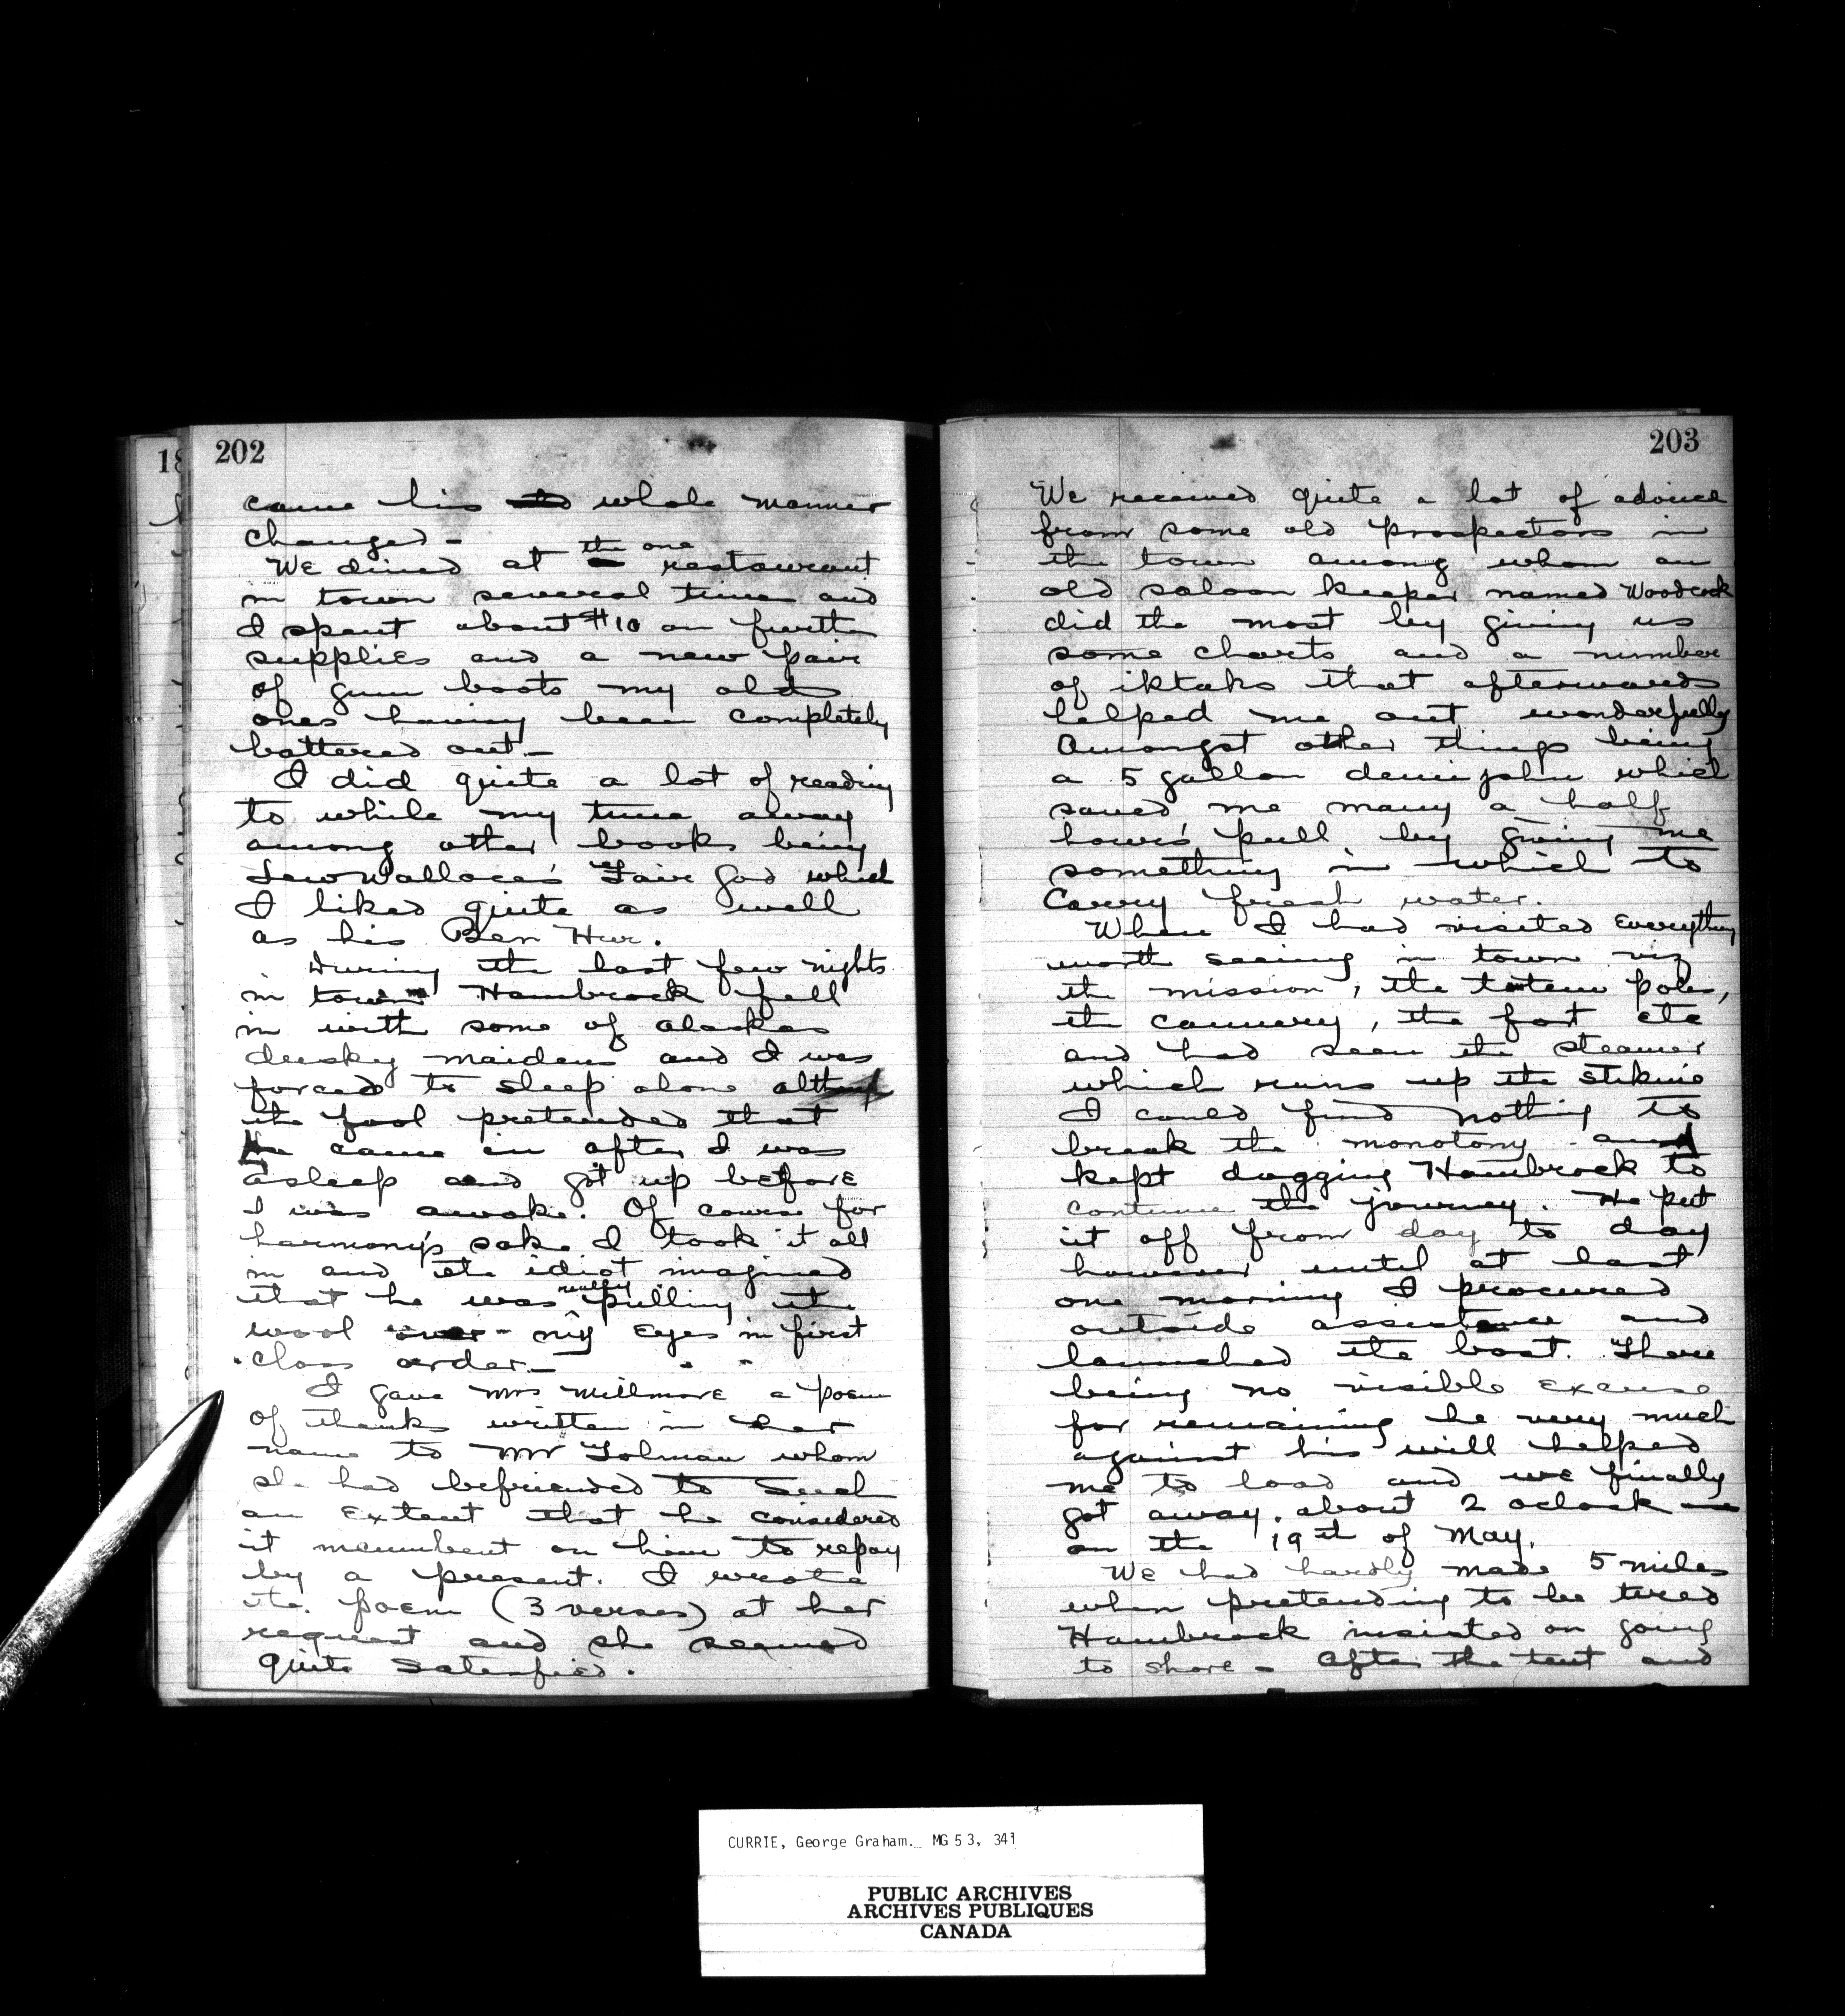 202
came his whole manner
changed -
the one
We dined at restaurant
in town several time and
I spent about $10 on further
supplies and a new pair
of gum boots my old
ones having been completely
battered out -
I did quite a lot of reading
to while my time away
among other books being
Lew Wallace's Fair God which
I liked quite as well
as his Ben Hur.
During the last few nights
in town Hambrock fell
in with some of alaskas
dusky maidens and I was
forced to sleep alone altho
the fool pretended that
he came in after I was
asleep and got up before
I was awake. Of course for
harmony's sake I took it all
in and the idiot imagined
really
that he was pulling the
wool over my eyes in first
class order -
I gave Mrs Millmore a poem
of thanks written in her
name to Mr Tolman whom
she had befriended to such
an extent that he considered
it incumbent on him to repay
by a present. I wrote
the poem (3 verses) at her
request and she seemed
quite satesfied.
203
We received quite a lot of advice
from some old prospectors in
the town among whom an
old saloon keeper named Woodcock
did the most by giving us
some charts and a number
of iktahs that afterwards
helped me out wonderfully
Amongst other things being
a 5 gallon demijohn which
saved me many a half
hours' pull by giving me
something in which to
carry fresh water.
When I had visited everything
worth seeing in town viz
the mission, the totem poles,
the cannery, the fort etc
and had seen the steamer
which runs up the Stikine
I could find nothing to
break the monotony and
kept dogging Hambrock to
continue the journey. He put
it off from day to day
however until at last
one morning I procured
outside assistance and
launched the boat. There
being no visible excuse
for remaining he very much
against his will helped
me to load and we finally
got away. about 2 oclock
on the 19th of May.
We had hardly made 5 miles
when pretending to be tired
Hambrock insisted on going
to shore - After the tent and
CURRIE, George Graham. MG 53, 341
PUBLIC ARCHIVES
ARCHIVES PUBLIQUES
CANADA